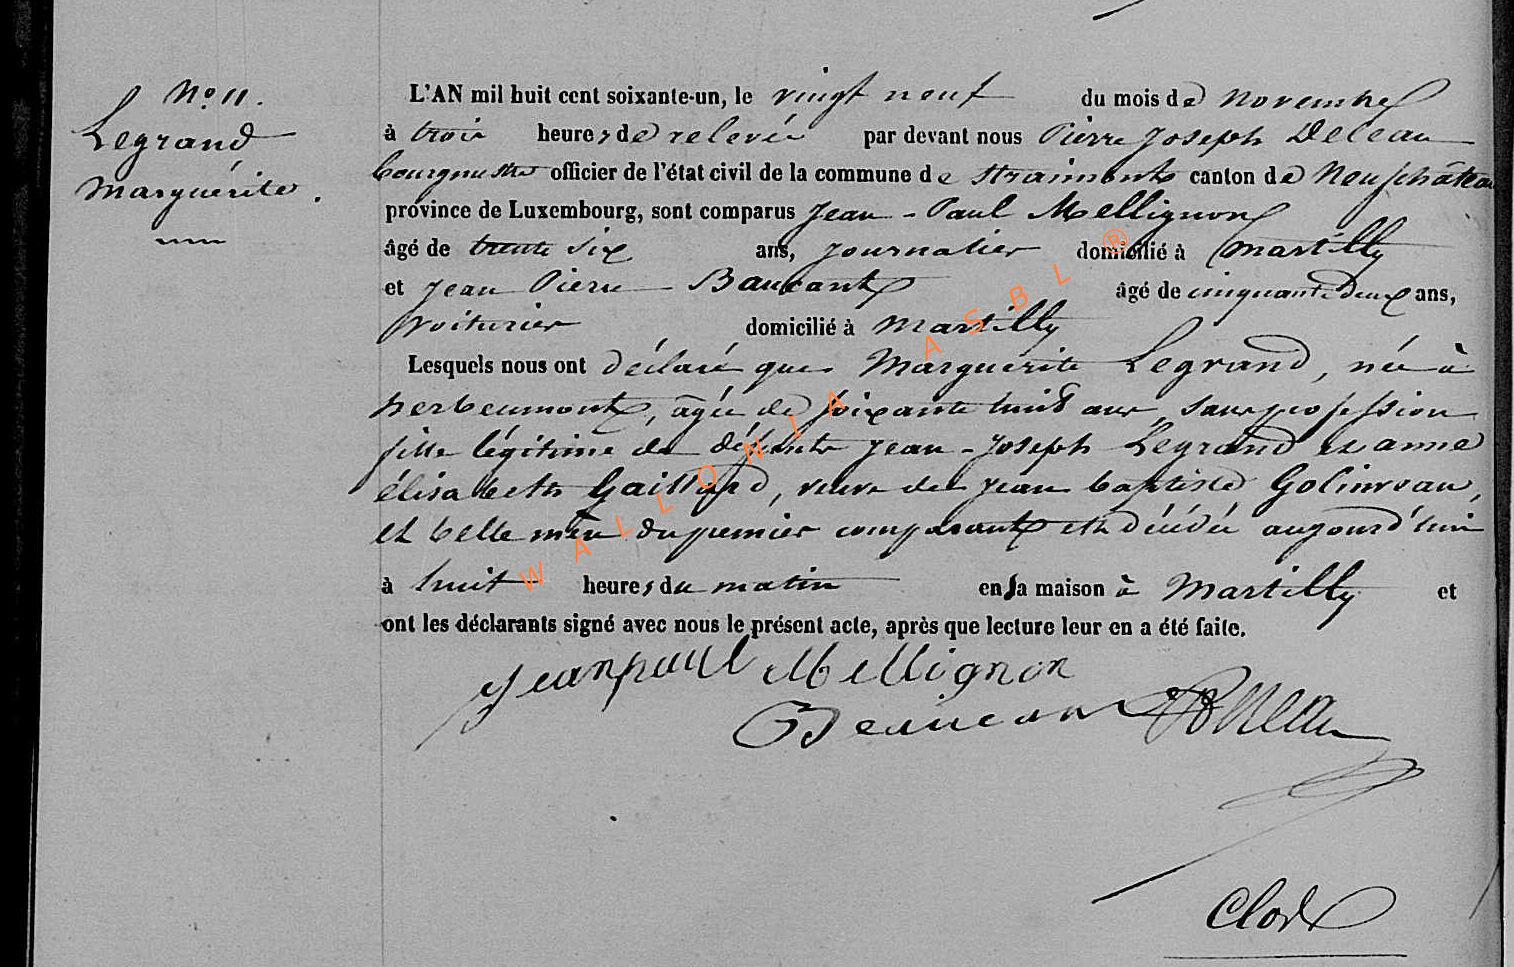 N° 11.
Legrand
Marguérite.
L'AN mil huit cent soixante-un, le vingt neuf du mois de novembre
à trois heures de relevée par devant nous Pierre Joseph Deleau
bourgmestre officier de l'état civil de la commune de Straimont canton de Neufchâteau
province de Luxembourg, sont comparus Jean-Paul Mellignon
âgé de trente six ans, journalier domicilié à Martilly
et Jean Pierre Baucant âgé de cinquante deux ans,
voiturier domicilié à Martilly
Lesquels nous ont déclaré que Marguerite Legrand, née à
herbeumont, âgée de soixante huit ans, sans profession
fille légitime de défunts Jean-Joseph Legrand et anne
élisabeth Gaillard, veuve de Jean baptiste Golinveau,
et belle mère du premier comparant est décédée aujourd'hui
à huit heures du matin en sa maison à Martilly et
ont les déclarants signé avec nous le présent acte, après que lecture leur en a été faite.
Jeanpaul Mellignon
Deleau
Clos
WALLONIA ASBL ®